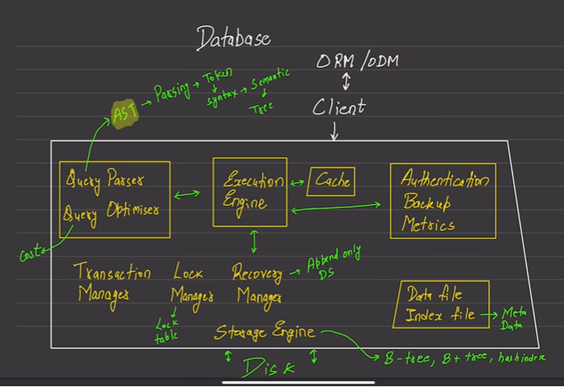 Database
ORM/ODM
Client
AST
Parsing
Token
Syntax
Semantic
Tree
Query Parser
Query Optimiser
Cost
Execution
Engine
Cache
Authentication
Backup
Metrics
Transaction
Manager
Lock
Manager
Lock
table
Recovery
Manager
Append only
DS
Storage Engine
Data file
Index file
Meta
Data
B-tree, B+ tree, hash index
Disk